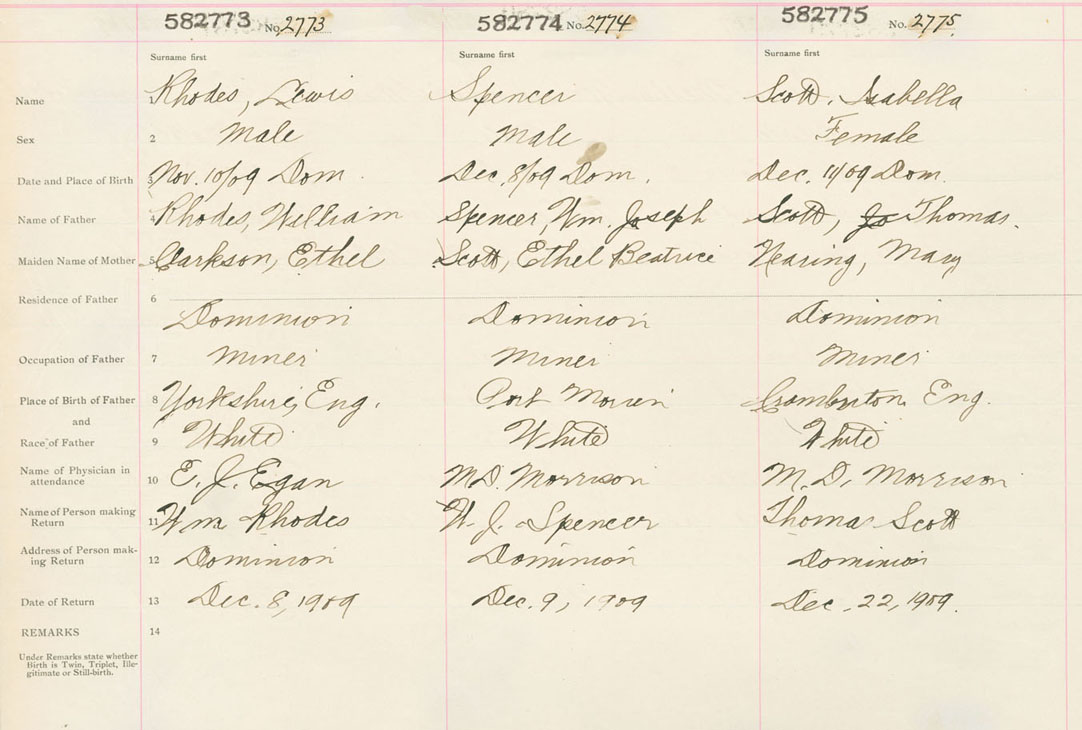 582773 No. 2773 582774 No. 2774 582775 No. 2775
Surname first Surname first Surname first
Name Rhodes, Lewis Spencer Scott, Isabella
Sex 2 Male Male Female
Date and Place of Birth 3 Nov. 10/09 Dom. Dec. 8/09 Dom. Dec. 11/09 Dom.
Name of Father 4 Rhodes, William Spencer, Wm. Joseph Scott, Jo Thomas.
Maiden Name of Mother 5 Clarkson, Ethel Scott, Ethel Beatrice Nearing, Mary
Residence of Father 6
Dominion Dominion Dominion
Occupation of Father 7 Miner Miner Miner
Place of Birth of Father 8 Yorkshire, Eng. Port Morien Eng.
and
Race of Father 9 White White White
Name of Physician in
attendance 10 E. J. Egan M.D. Morrison M. D. Morrison
Name of Person making
Return 11 Wm Rhodes W. J. Spencer Thomas Scott
Address of Person mak-
ing Return 12 Dominion Dominion Dominion
Date of Return 13 Dec. 8, 1909 Dec. 9, 1909 Dec. 22, 1909.
REMARKS 14
Under Remarks state whether
Birth is Twin, Triplet, Ille-
gitimate or Still-birth.